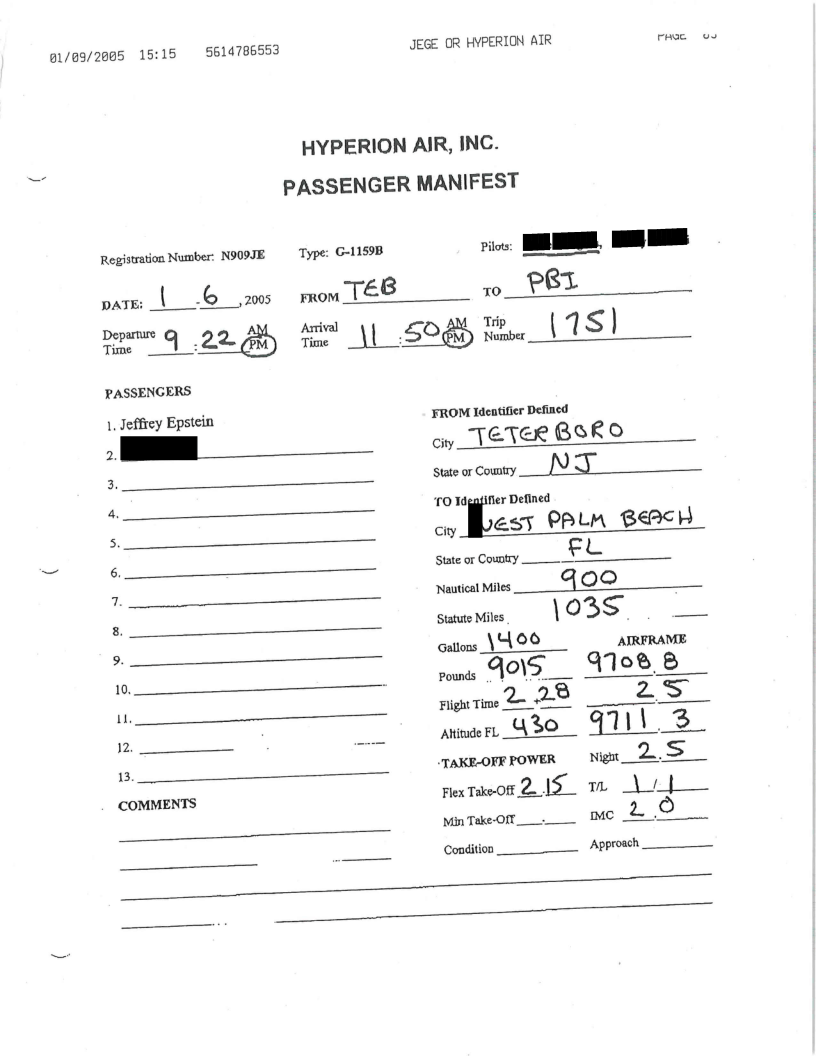 01/09/2005 15:15 5614786553 JEGE OR HYPERION AIR PAGE 03
HYPERION AIR, INC.
PASSENGER MANIFEST
Registration Number: N909JE Type: G-1159B Pilots: ,
DATE: 1 - 6 , 2005 FROM TEB TO PBI
Departure Time 9 : 22 AM PM Arrival Time 11 : 50 AM PM Trip Number 1751
PASSENGERS
1. Jeffrey Epstein
2.
3.
4.
5.
6.
7.
8.
9.
10.
11.
12.
13.
COMMENTS
FROM Identifier Defined
City TETERBORO
State or Country NJ
TO Identifier Defined
City WEST PALM BEACH
State or Country FL
Nautical Miles 900
Statute Miles 1035
Gallons 1400 AIRFRAME
Pounds 9015 9708.8
Flight Time 2 + 28 2.5
Altitude FL 430 9711.3
TAKE-OFF POWER Night 2.5
Flex Take-Off 2.15 T/L 1 / 1
Min Take-Off . IMC 2.0
Condition Approach